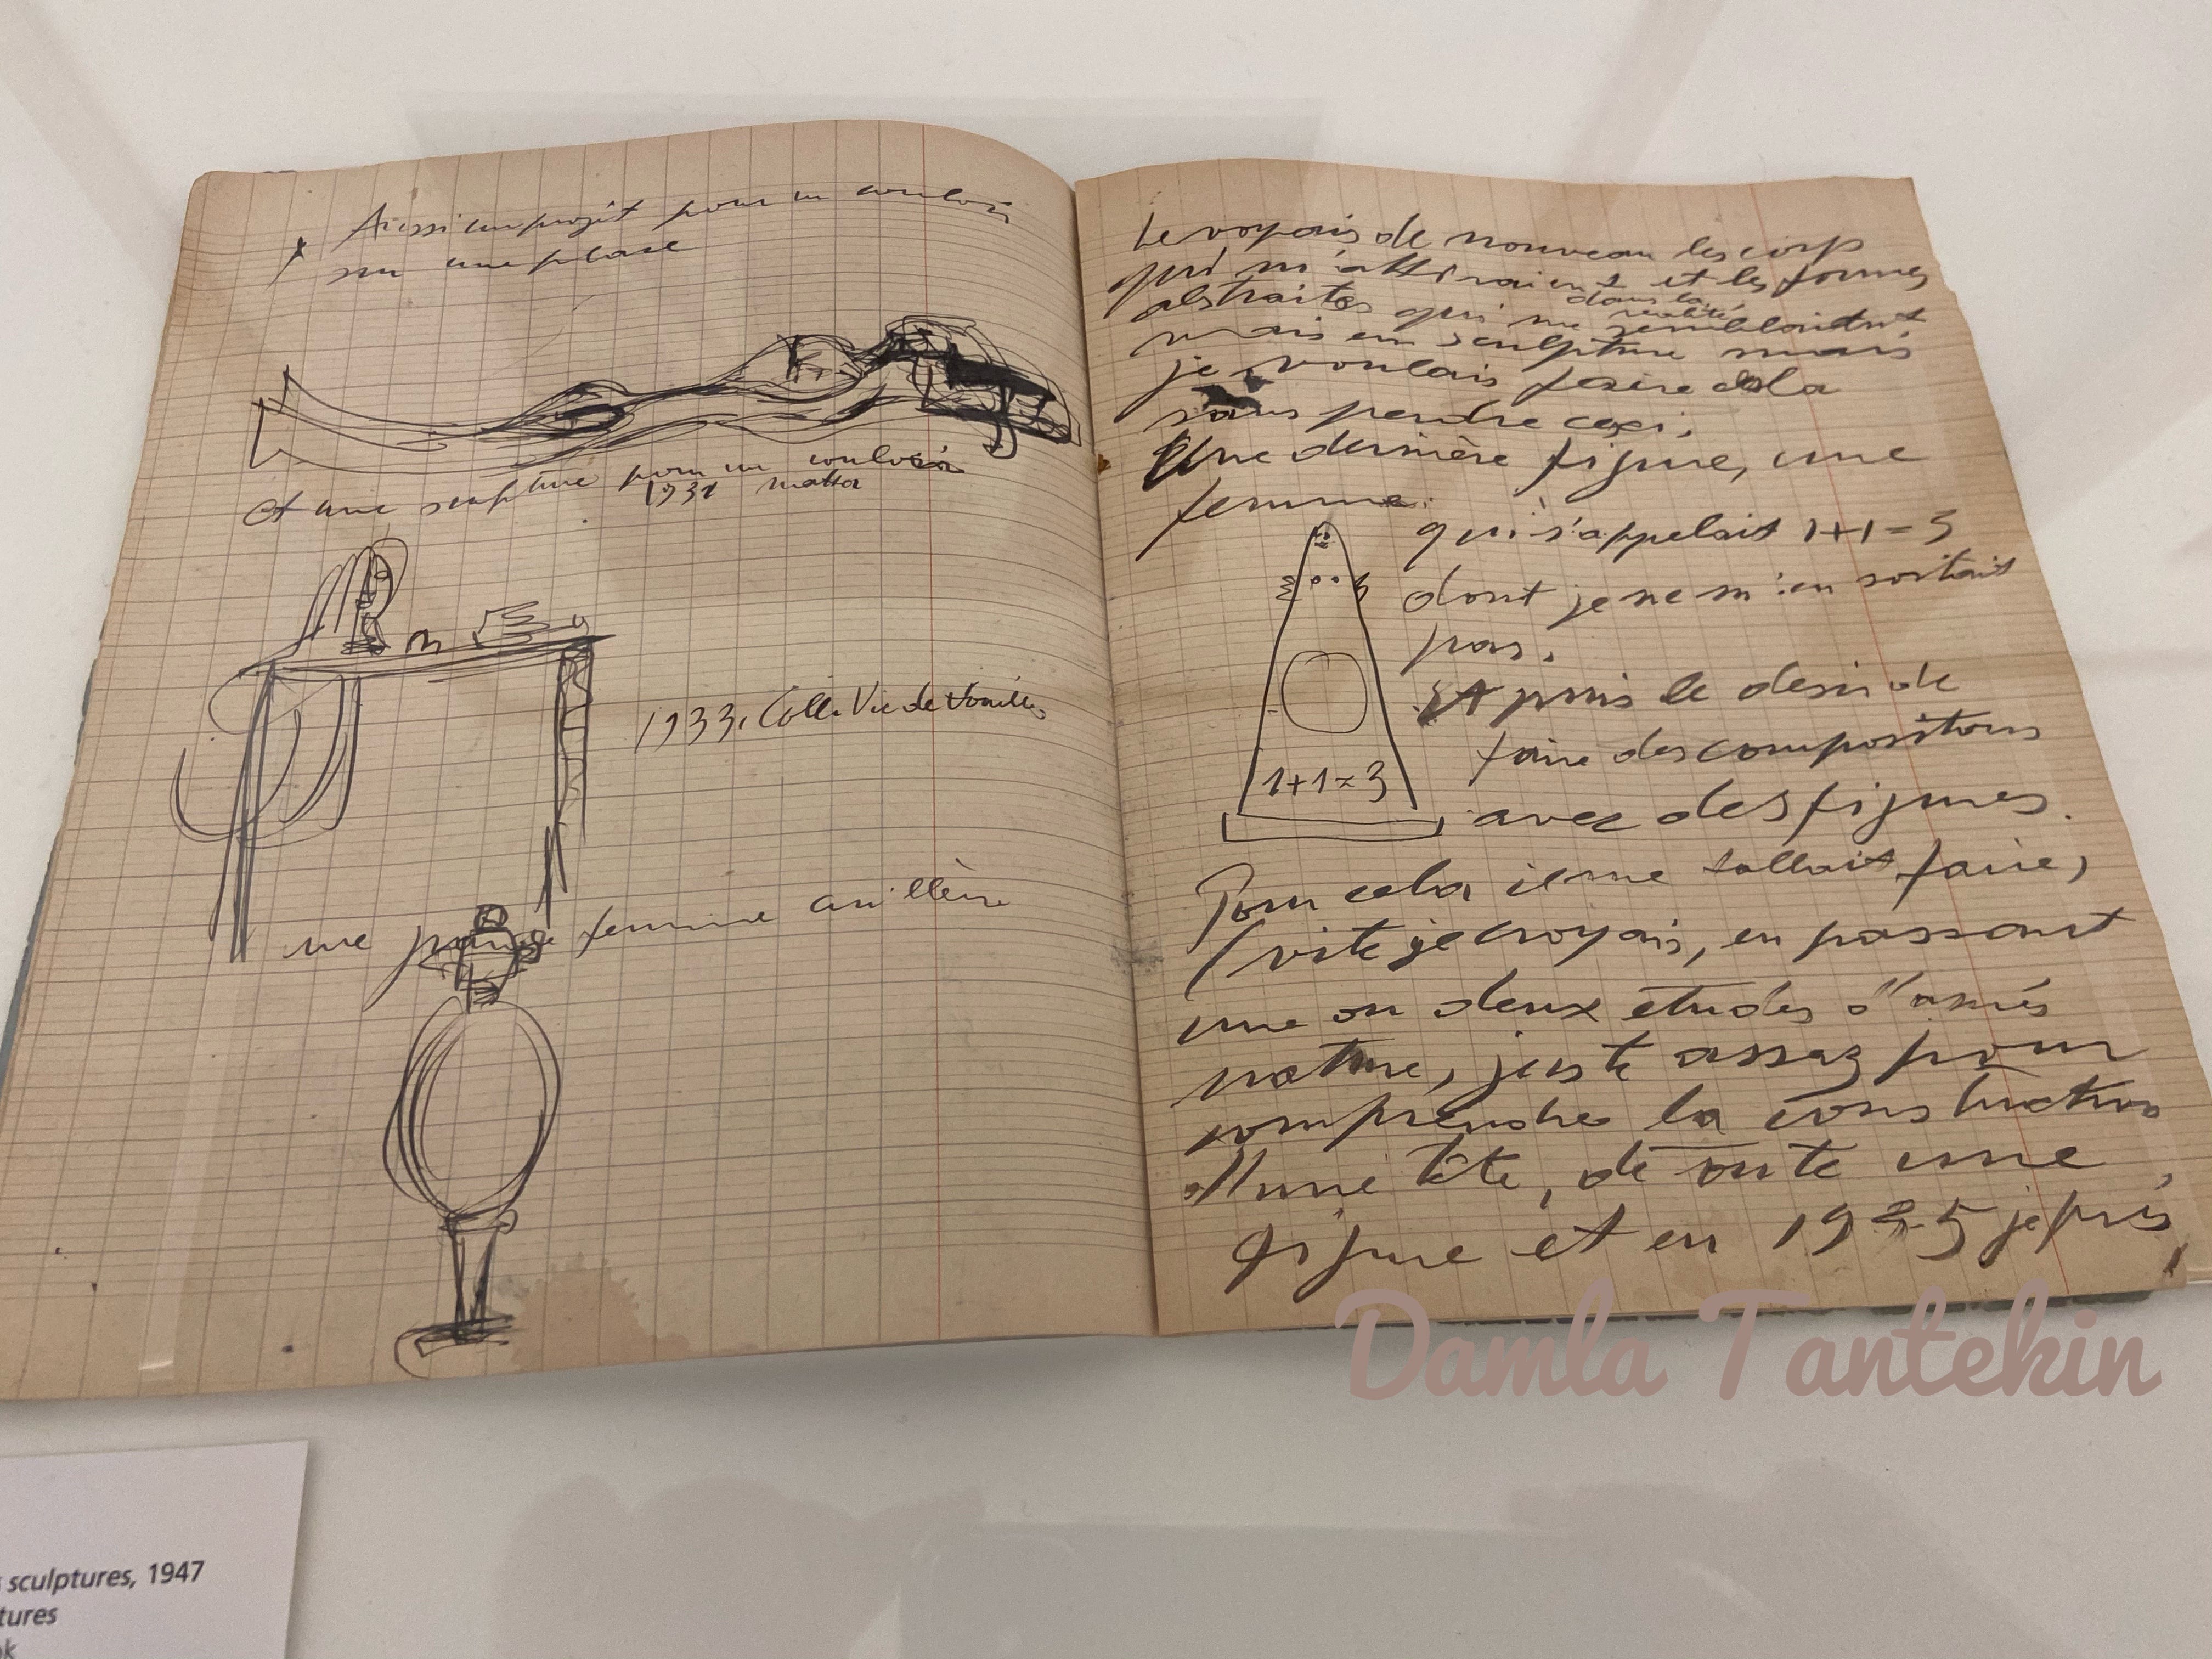 Aussi un projet pour un couloir
sur une place
et une sculpture pour un couloir
1931
1933. Colle Vie de
une jeune femme cuillère
Je voyais de nouveau les corps
qui m'attiraient et les formes
dans la
réalité
abstraites qui me semblaient
vrais en sculpture mais
je voulais faire cela
sans perdre ceci,
Une dernière figure, une
femme
qui s'appelait 1+1=3
dont je ne m'en sortait
pas.
Et puis le desir de
faire des compositions
avec des figures.
1+1=3
Pour cela il me fallait faire,
(vite je croyais, en passant
une ou deux etudes d'après
nature, juste assez pour
comprendre la construction
d'une tête, de toute une
figure et en 1935 je pris
Damla Tantekin
sculptures, 1947
tures
ok